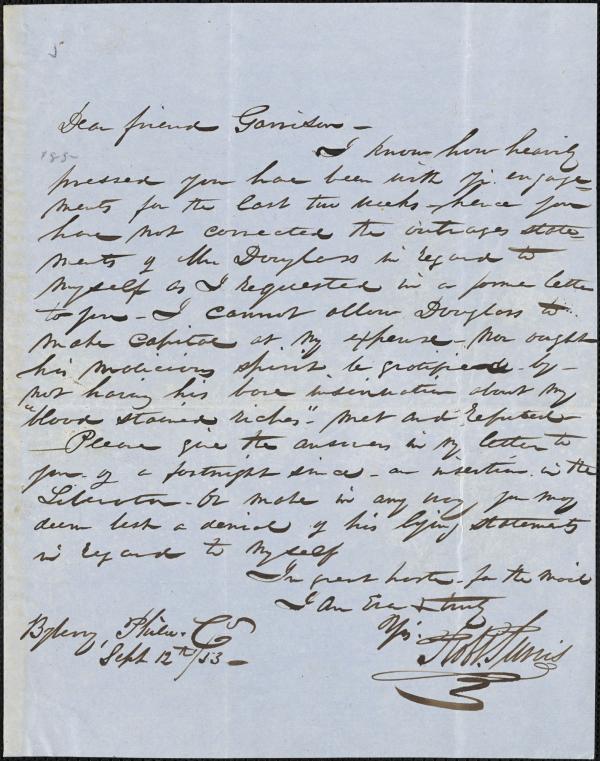 5
Dear friend Garrison—
185-
I know how heavily
pressed you have been with yr. engage-
ments for the last two weeks—hence you
have not corrected the outrages state-
ments of Mr Douglass in regard to
myself as I requested in a former letter
to you—I cannot allow Douglass to
make capital at my expense—nor ought
his malicious spirit be gratified—by—
not having his base insinuation about my
"blood stained riches"—met and refuted
—Please give the answers in my letter to
you of a fortnight since—an insertion in the
Liberator—Or make in any way you may
deem best a denial of his lying statements
in regard to myself
In great haste—for the mail
I am Ever & truly
Yrs.
Byberry, Phila. Co
Robt. Purvis
Sept 12th/53—